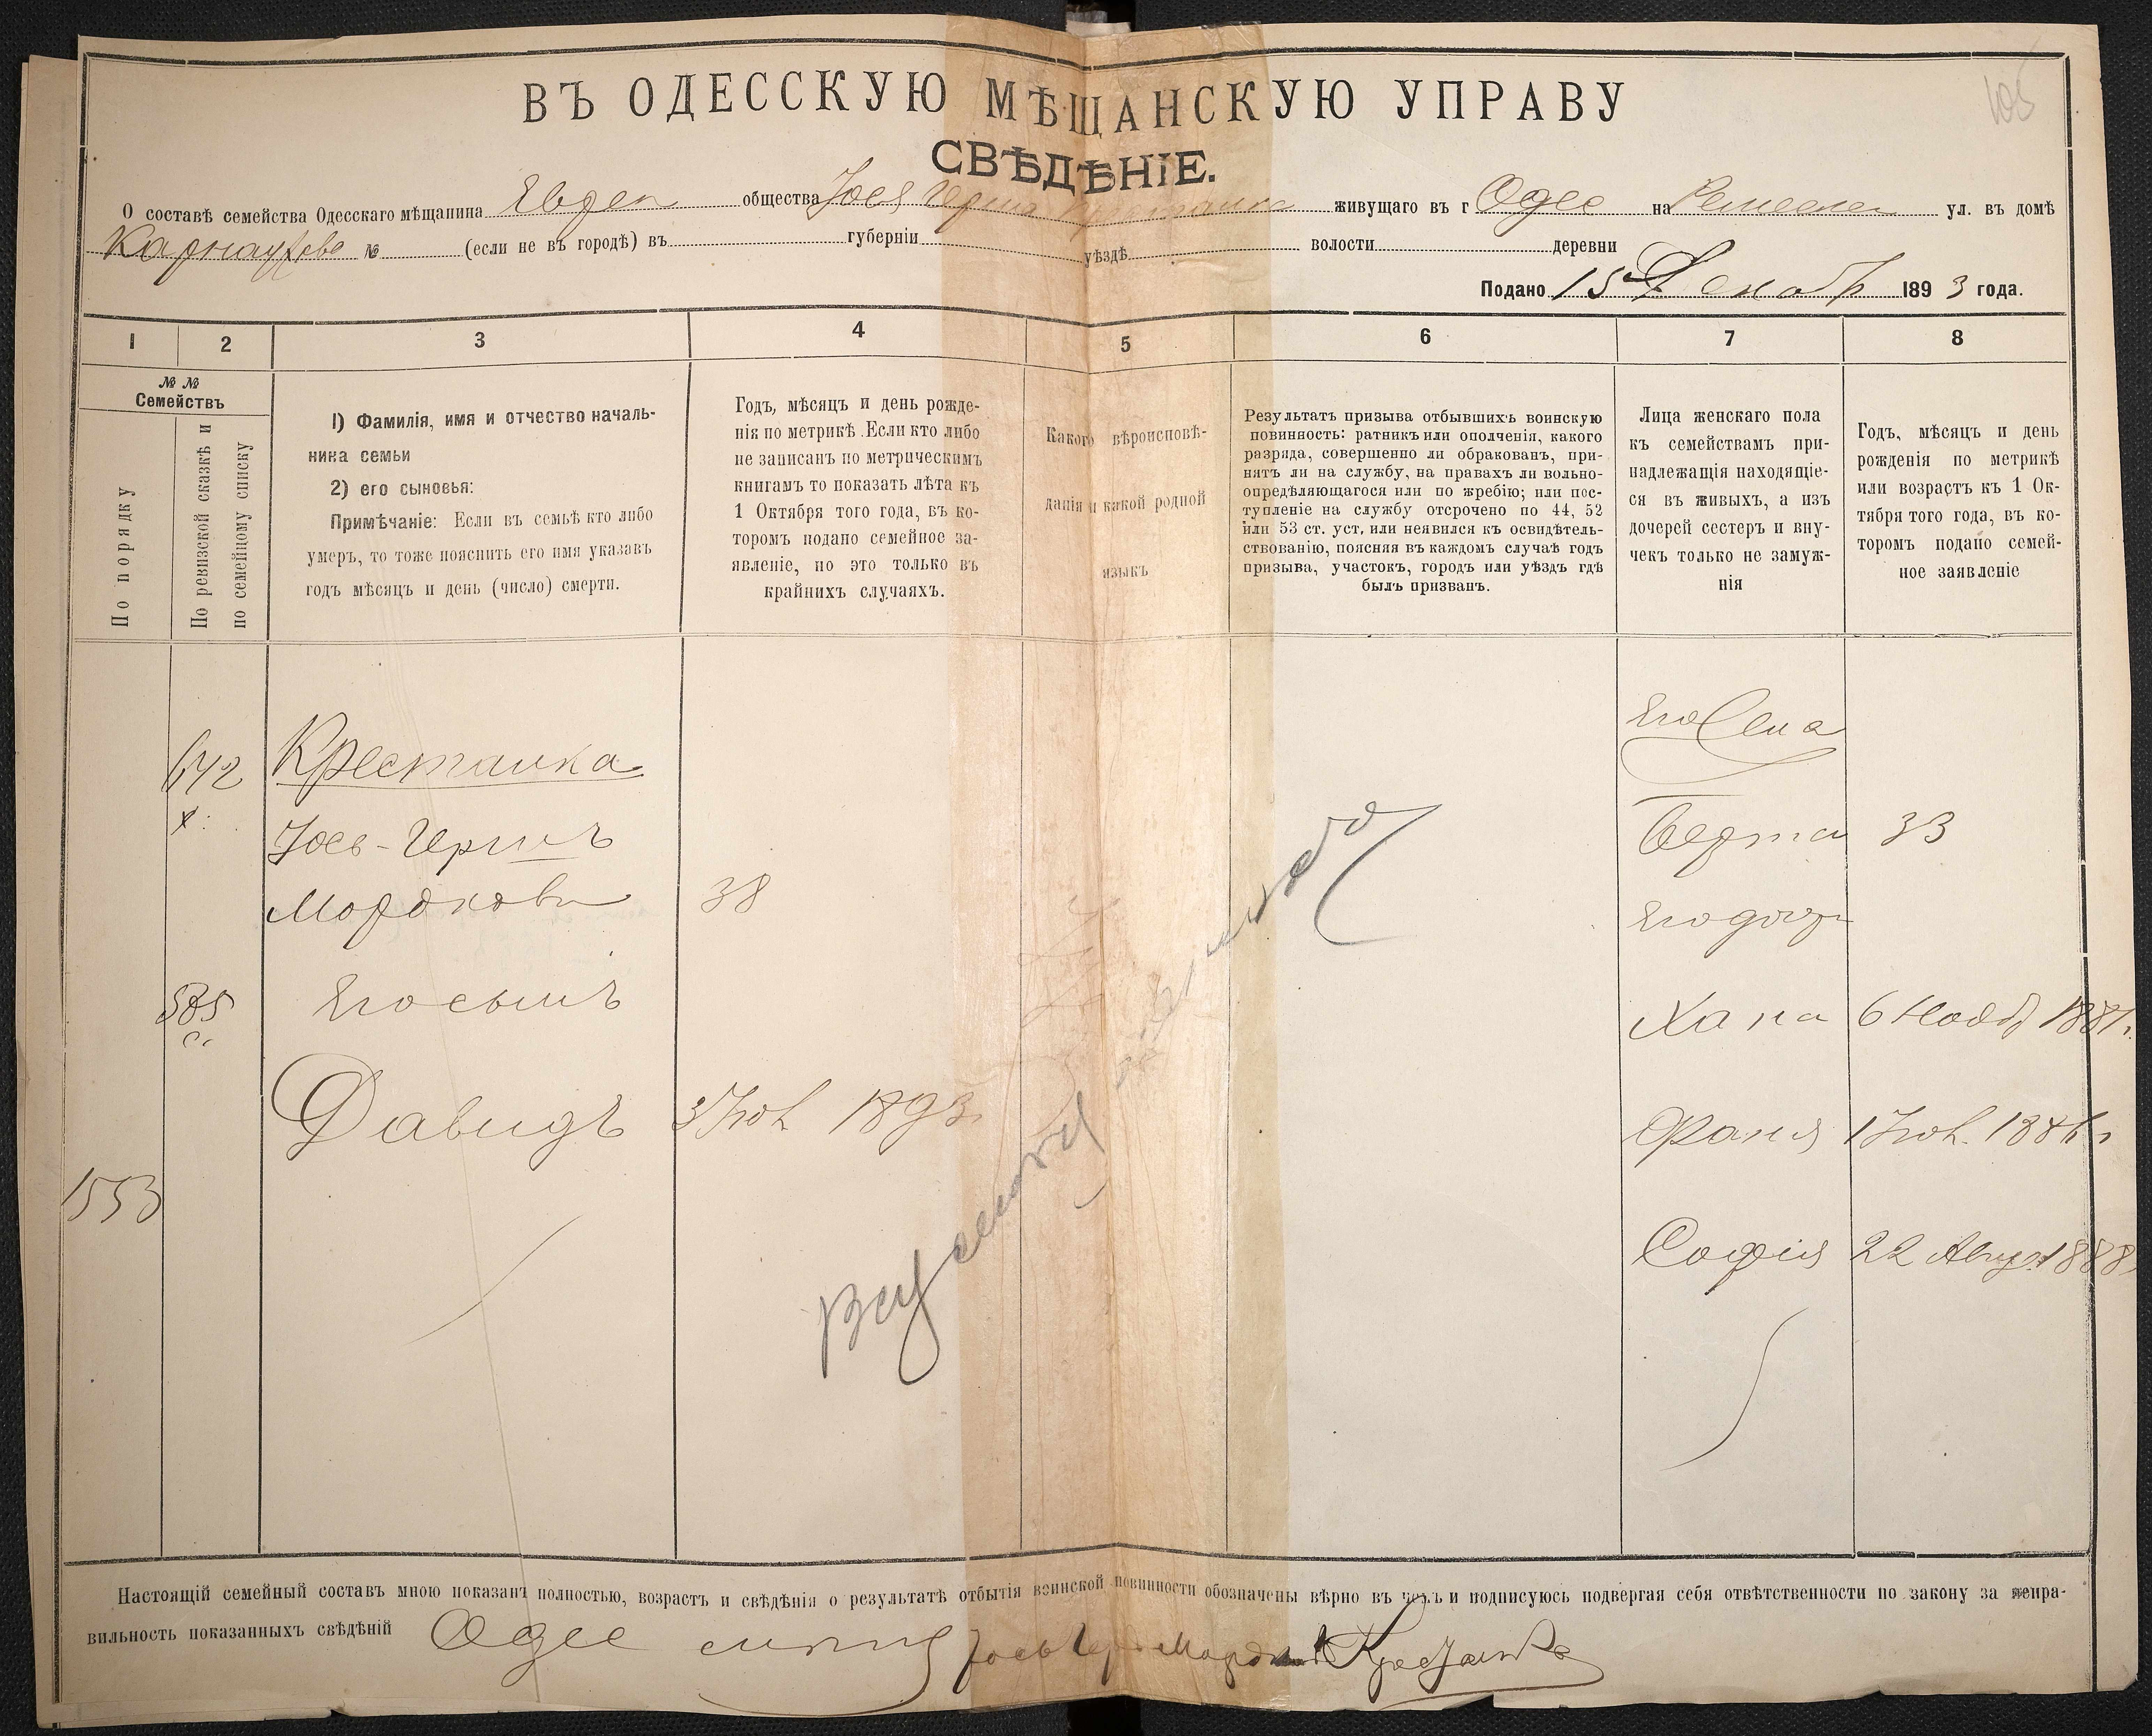 105
ВЪ ОДЕССКУЮ МѢЩАНСКУЮ УПРАВУ
СВѢДѢНІЕ.
О составѣ семейства Одесскаго мѣщанина Евреи общества Іося Герша Крестаика живущаго въ г Одес на Ремеслен ул. въ домѣ
Карнаухова № (если не въ городѣ) въ губерніи уѣздѣ волости деревни
Подано 15 Декабр 1893 года.
1 2 3 4 5 6 7 8
№ №
Семействъ
По порядку
По ревизской сказкѣ и
по семейному списку
1) Фамилія, имя и отчество началь-
ника семьи
2) его сыновья:
Примѣчаніе: Если въ семьѣ кто либо
умеръ, то тоже пояснить его имя указавъ
годъ мѣсяцъ и день (число) смерти.
Годъ, мѣсяцъ и день рожде-
нія по метрикѣ. Если кто либо
не записанъ по метрическимъ
книгамъ то показать лѣта къ
1 Октября того года, въ ко-
торомъ подано семейное за-
явленіе, но это только въ
крайнихъ случаяхъ.
Какого вѣроисповѣ-
данія и какой родной
языкъ
Результатъ призыва отбывшихъ воинскую
повинность: ратникъ или ополченія, какого
разряда, совершенно ли обракованъ, при-
нятъ ли на службу, на правахъ ли вольно-
опредѣляющагося или по жребію; или пос-
тупленіе на службу отсрочено по 44, 52
или 53 ст. уст, или неявился къ освидѣтель-
ствованію, поясняя въ каждомъ случаѣ годъ
призыва, участокъ, городъ или уѣздъ гдѣ
былъ призванъ.
Лица женскаго пола
къ семействамъ при-
надлежащія находящіе-
ся въ живыхъ, а изъ
дочерей сестеръ и вну-
чекъ только не замуж-
нія
Годъ, мѣсяцъ и день
рожденія по метрикѣ
или возрастъ къ 1 Ок-
тября того года, въ ко-
торомъ подано семей-
ное заявленіе
642 Крестаика
Іось-Гершъ
Мордкови 38
585 Его сынъ
Давидъ 3 Іюл 1893
1553
Его жена
Берта 33
Его дочр
Хана 6 Нояб 1881г.
Фаня 1 Іюл. 1886г
Софія 22 Авгус 1888
Настоящій семейный составъ мною показанъ полностью, возрастъ и свѣдѣнія о результатѣ отбытія воинской повинности обозначены вѣрно въ чемъ и подписуюсь подвергая себя отвѣтственности по закону за непра-
вильность показанныхъ свѣдѣній Одес Іось Гер Мордк Крестаика